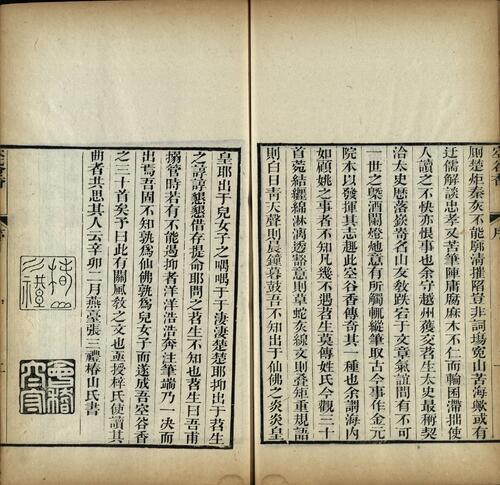 空谷香
序
則楚炬秦灰不能廓清摧陷豈非詞塲寃山苦海歟或有
迂儒解談忠孝又苦筆陣庸腐麻木不仁而輪囷滯拙使
人讀之不快亦恨事也余守越州獲交苕生太史最稱契
洽太史歷落嶔奇名山友敎跌宕于文章氣誼間有不可
一世之槩酒闌燈灺意有所觸輒縱筆取古今事作金元
院本以發揮其志趣此空谷香傳奇其一種也余謂海內
如顧姚之事者不知凡幾不遇苕生莫傳姓氏今觀三十
首菀結纏綿淋漓透豁意則草蛇灰線文則疊矩重規語
則白日青天聲則晨鐘暮鼓吾不知出于仙佛之炎炎皇
皇耶出于兒女子之喁喁于于淒淒楚楚耶抑出于苕生
之諄諄懇懇借存提命耶問之苕生不知也苕生曰吾甫
搦管時若有不能遏抑者洋洋浩浩奔注筆端乃一決而
出焉吾固不知孰爲仙佛孰爲兒女子而遂成吾空谷香
之三十首矣予曰此有關風敎之文也亟授梓氏使讀其
曲者共思其人云辛卯二月燕臺張三禮椿山氏書
空谷香
序